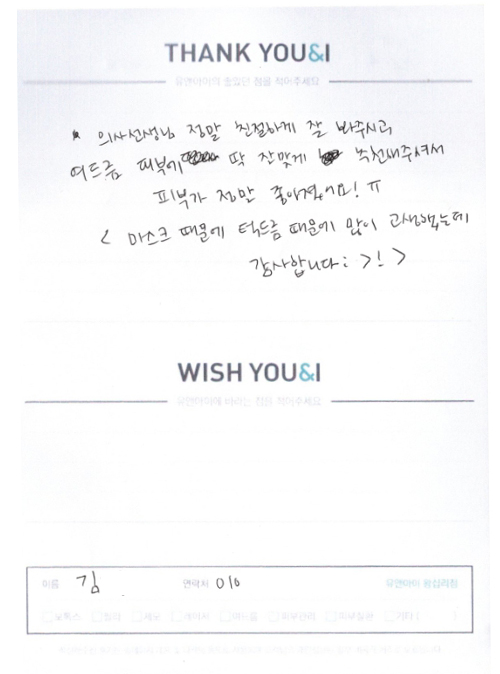 THANK YOU&I
유앤아이의 좋았던 점을 적어주세요
* 의사선생님 정말 친절하게 잘 봐주시구
여드름 피부에 딱 잘맞게 추천해주셔서
피부가 정말 좋아졌어요! ㅠ
< 마스크 때문에 턱드름 때문에 많이 고생했는데
감사합니다 : > ! >
WISH YOU&I
유앤아이에 바라는 점을 적어주세요
이름 김 연락처 010 유앤아이 왕십리점
보톡스 필러 제모 레이저 여드름 피부관리 기타 ( )